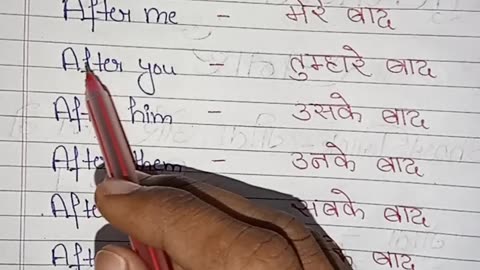 After me - मेरे बाद
After you - तुम्हारे बाद
After him - उसके बाद
After them - उनके बाद
सबके बाद
बाद